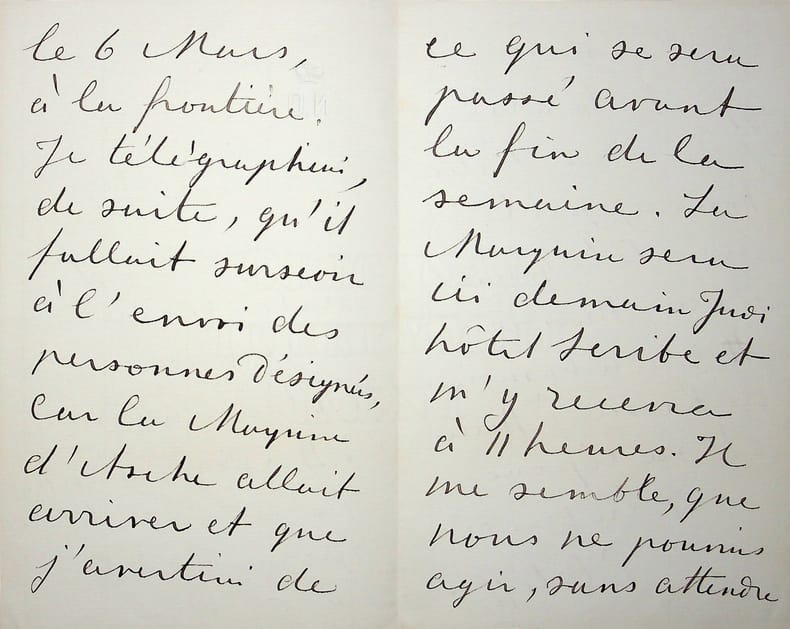 le 6 Mars,
à la frontière.
Je télégraphiai,
de suite, qu'il
fallait surseoir
à l'envoi des
personnes désignés,
car la Marquise
d'Asche allait
arriver et que
j'avertirai de
ce qui se sera
passé avant
la fin de la
semaine. La
Marquise sera
ici demain Jeudi
hôtel Scribe et
m'y recevra
à 11 heures. Il
me semble, que
nous ne pouvons
agir, sans attendre